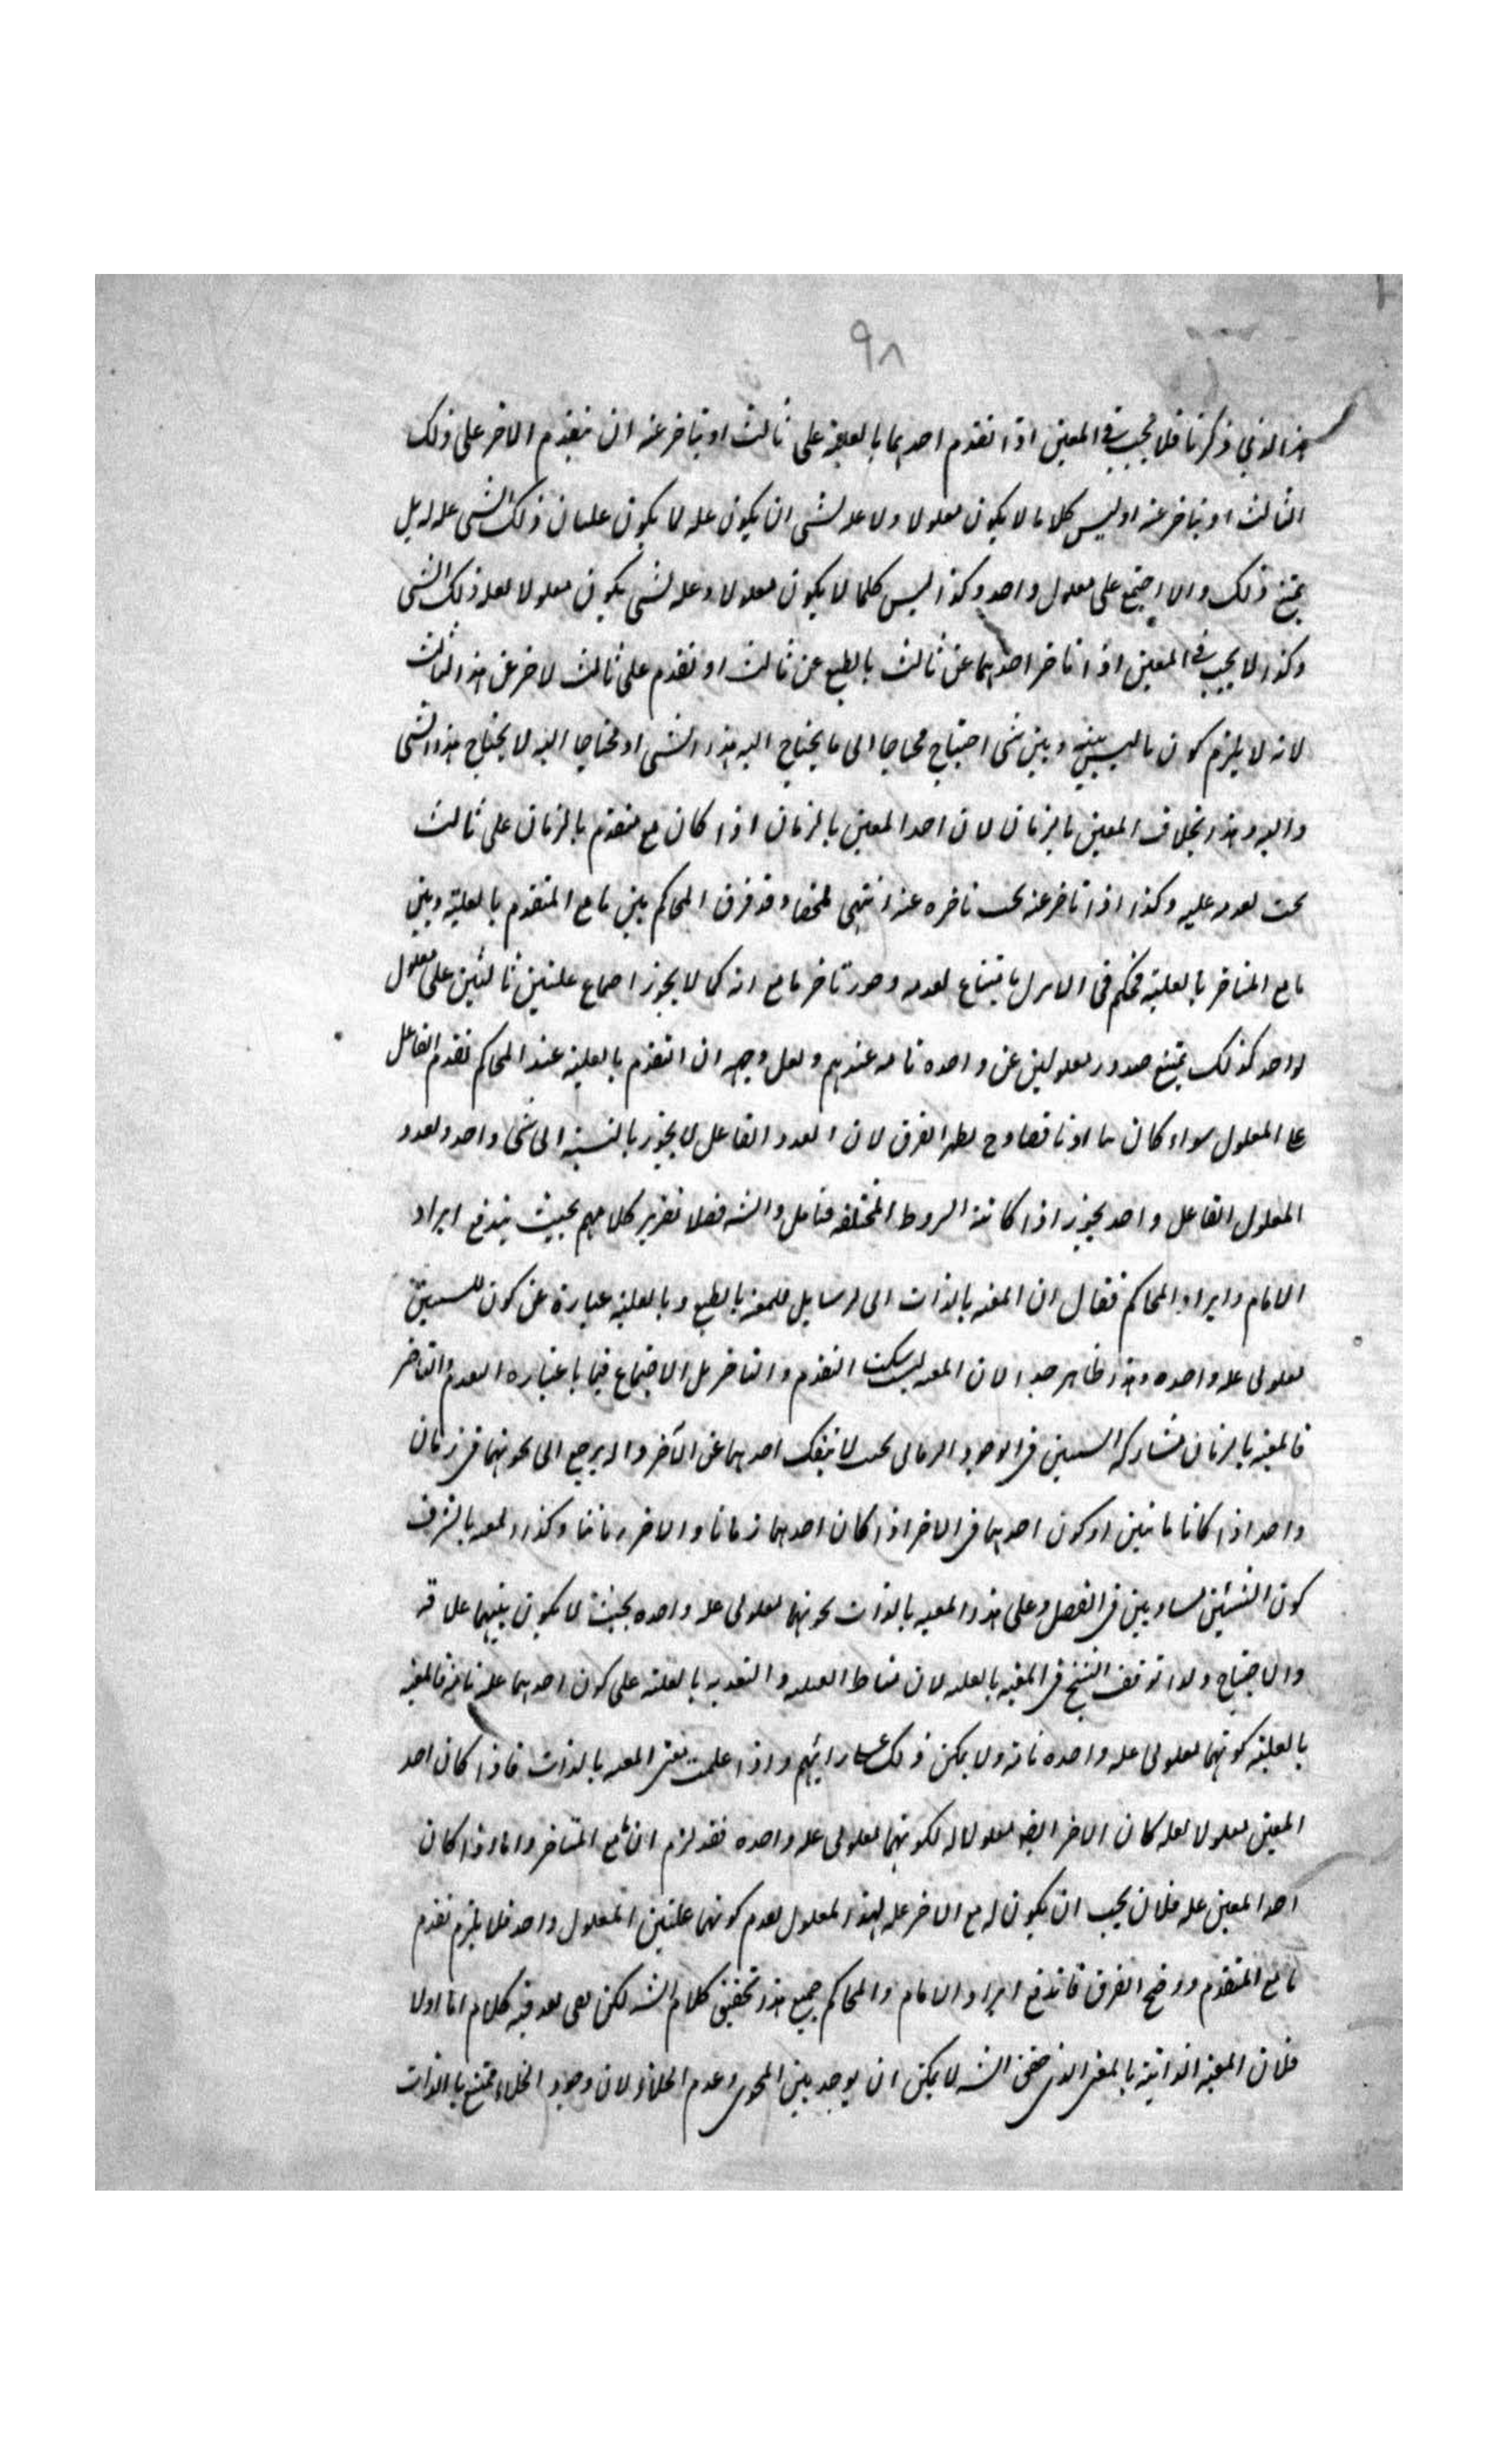 ٩٨
هذا الذي ذكرنا فلا يجب في المعين اذا تقدم احدهما بالعلية على ثالث او تاخر عنه ان يتقدم الاخر على ذلك
الثالث او يتاخر عنه اذ ليس كلما لا يكون معلولا ولا عله لشئ ان يكون عله لا يكون ذلك الشئ عله له بل
يمتنع ذلك والا اجتمع على معلول واحد وكذا ليس كلما لا يكون معلولا وعله لشئ يكون معلولا لعله ذلك الشئ
وكذا لا يجب في المعين اذا تاخر احدهما عن ثالث بالطبع عن ثالث او تقدم على ثالث لاخر عن هذا الثالث
لانه لا يلزم كون ما ليس بينه وبين شئ احتياج محتاجا الى ما يحتاج اليه هذا الشئ او محتاجا اليه لا يحتاج هذا الشئ
واليه وهذا بخلاف المعين بالزمان لان احد المعين بالزمان اذا كان مع متقدم بالزمان على ثالث
يجب تقدمه عليه وكذا اذا تاخر عنه يجب تاخره عنه انتهى ملخصا وقد فرق المحاكم بين ما مع المتقدم بالعلية وبين
ما مع المتاخر بالعلية فحكم في الاول بامتناع تقدمه وجوز تاخر ما مع انه كما لا يجوز اجتماع علتين على معلول
واحد كذلك يمتنع صدور معلولين عن واحده تامه عندهم ولعل وجهه ان التقدم بالعلية عند المحاكم تقدم الفاعل
على المعلول سواء كان تاما او ناقصا وح يظهر الفرق لان تعدد الفاعل لا يجوز بالنسبة الى شئ واحد وتعدد
المعلول لفاعل واحد يجوز اذا كانت الشروط المختلفه فتامل والشه فصلا تقرير كلامهم بحيث يندفع ايراد
الامام وايراد المحاكم فقال ان المعيه بالذات اى بالطبع وبالعلية عبارة عن كون الشيئين
معلولى عله واحده وهذا ظاهر جدا لان المعيه ليست التقدم والتاخر بل الاجتماع فيما باعتباره التقدم والتاخر
فالمعية بالزمان مشاركه الشيئين في الوجود الزمانى بحيث لا ينفك احدهما عن الآخر والا يرجع الى كونهما في زمان
واحد اذا كانا زمانيين او كون احدهما في الاخر اذا كان احدهما زمانا والاخر زمانيا وكذا المعيه بالشرف
كون الشيئين متساويين في الفضل وعلى هذا المعيه بالذات كونهما معلولى عله واحده بحيث لا يكون بينهما علاقه
والاحتياج ولذا توقف الشيخ في المعيه بالعله لان مناط العليه والتقدم بالعلية على كون احدهما عله تامة فالمعية
بالعلية كونهما معلولى عله واحده تامة ولا يمكن ذلك على رائهم واذا علمت معنى المعيه بالذات فاذا كان احد
المعين معلولا لعله كان الاخر ايضا معلولا له لكونهما معلولى عله واحده فقد لزم ان مع المتاخر واما اذا كان
احد المعين عله فلا يجب ان يكون له مع الاخر عله لهذا المعلول لعدم كونهما علتين لمعلول واحد فلا يلزم تقدم
ما مع المتقدم ووضح الفرق فاندفع ايراد الامام والمحاكم جميع هذا تحقيق كلام الشه لكن بقى بعد فيه كلام اما اولا
فلان المعية الذاتية بالمعنى الذى حقق الشه لا يمكن ان يوجد بين المحوى وعدم الخلاء لان وجود الخلاء ممتنع بالذات